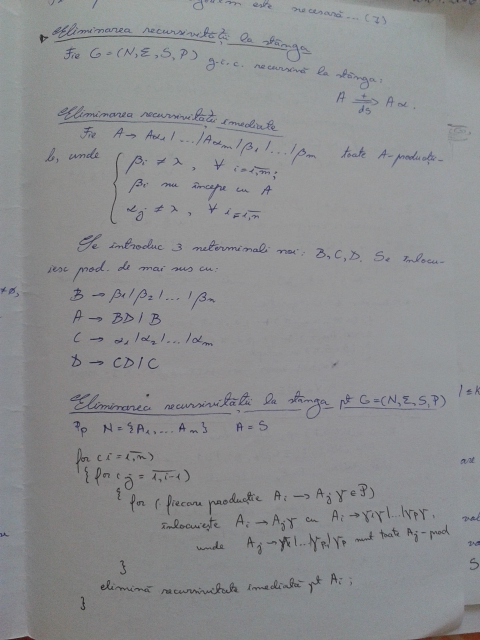 este necesară... (3)
Eliminarea recursivității la stânga
Fie G = (N, Σ, S, P) g.i.c. recursivă la stânga:
A ⇒ + ds Aα.
Eliminarea recursivității imediate
Fie A → Aα1 | ... | Aαm | β1 | ... | βm toate A-producții-
le, unde
βi ≠ λ, ∀ i=1,m;
βi nu începe cu A
αj ≠ λ, ∀ i=1,n
Se introduc 3 neterminali noi: B, C, D. Se înlocu-
iesc prod. de mai sus cu:
B → β1 | β2 | ... | βm
A → BD | B
C → α1 | α2 | ... | αm
D → CD | C
Eliminarea recursivității la stânga pt G=(N,Σ,S,P)
Pp N = {A1, ... An} A = S
for (i = 1,n)
{ for (j = 1,i-1)
{ for (fiecare producție Ai → Aj γ ∈ P)
înlocuiește Ai → Ajγ cu Ai → γ1γ | ... | γpγ,
unde Aj → | ... | γp sunt toate Aj-prod
}
elimină recursivitate imediată pt Ai;
}